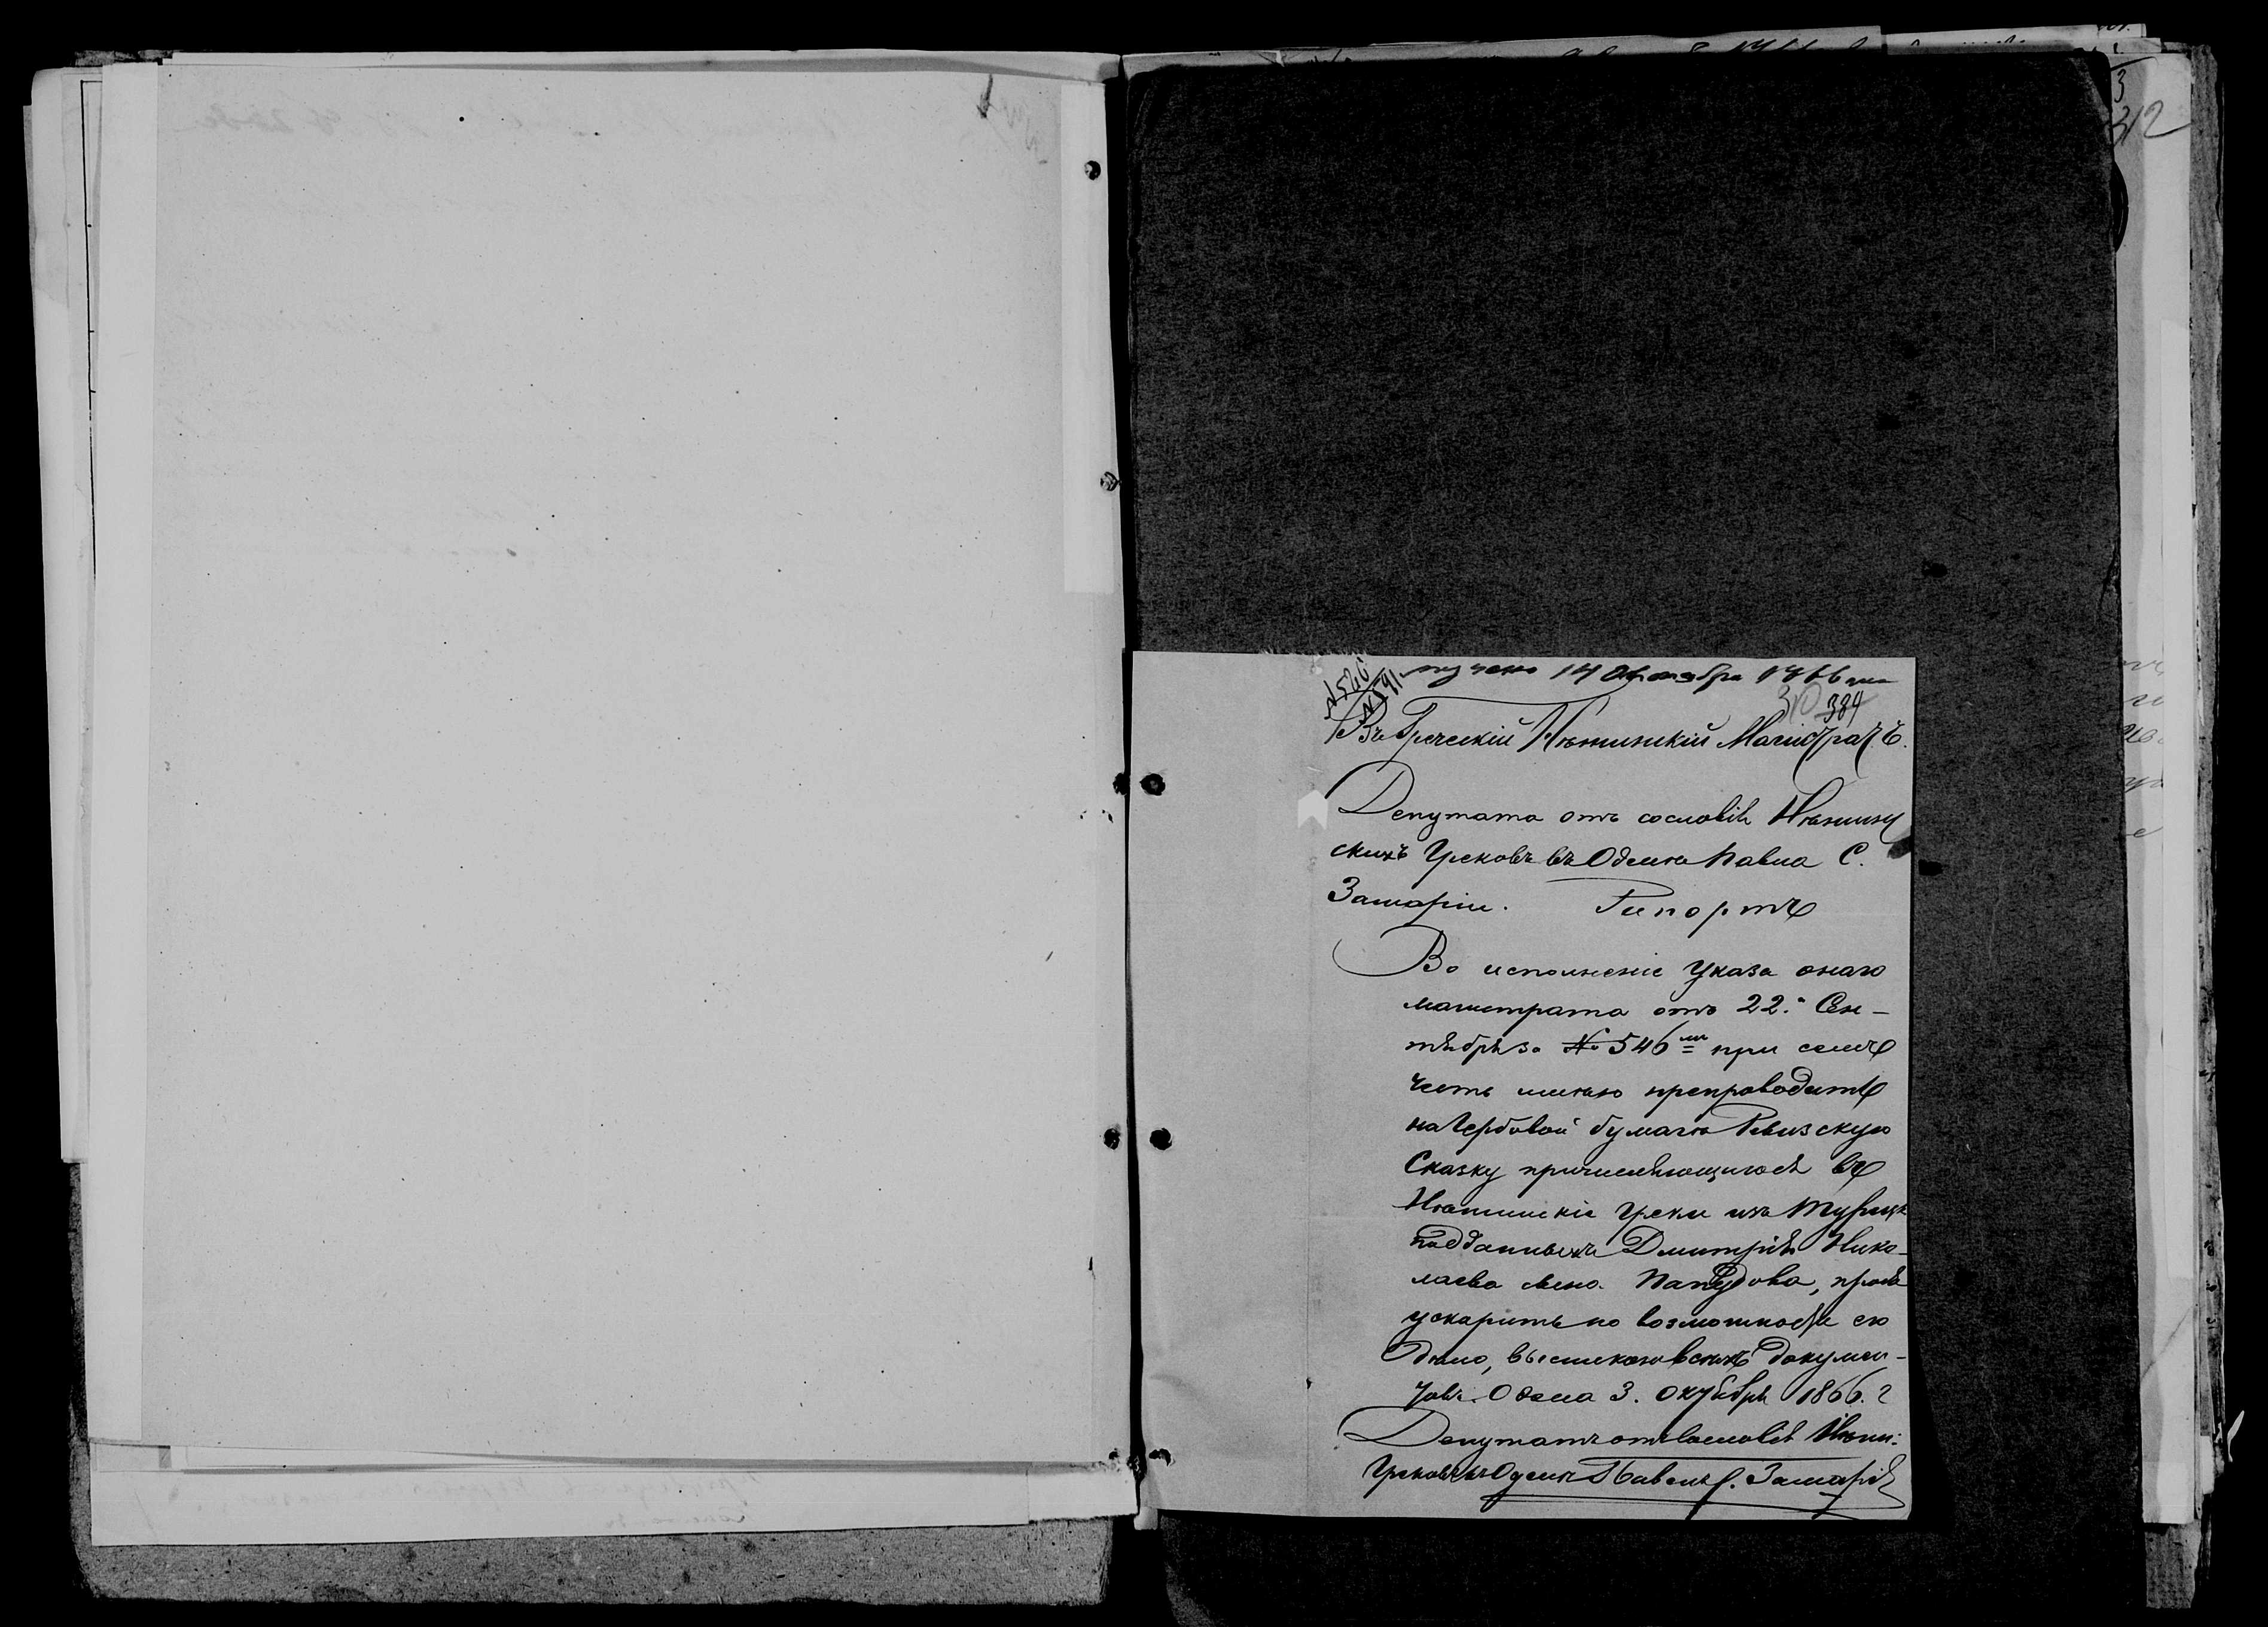 получено 14 Октября 1866 года
384
Въ Греческій Нѣжинскій Магистратъ.
Депутата отъ сословія Нѣжин
скихъ Грековъ въ Одессѣ Павла С.
Рипортъ
Во исполненіе Указа онаго
магистрата отъ 22. Сен-
тября за № 546 при семъ
честь имѣю препроводить
на Гербовой бумагѣ Ревизскую
Сказку причисляющигося въ
Нѣжинскіе Греки изъ Турецк
подданныхъ Дмитрія Нико-
лаева сына Папудова, прося
ускарить по возможности сю
дѣло, докумен-
товъ. Одесса 3. Октября 1866. г
Депутатъ отъ Сословія Нѣжин:
Грековъ въ Одессѣ Павелъ С.
312